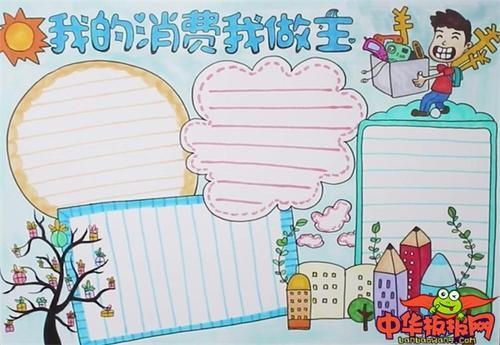 我的消费我做主
中华板报网
banbaowang.com